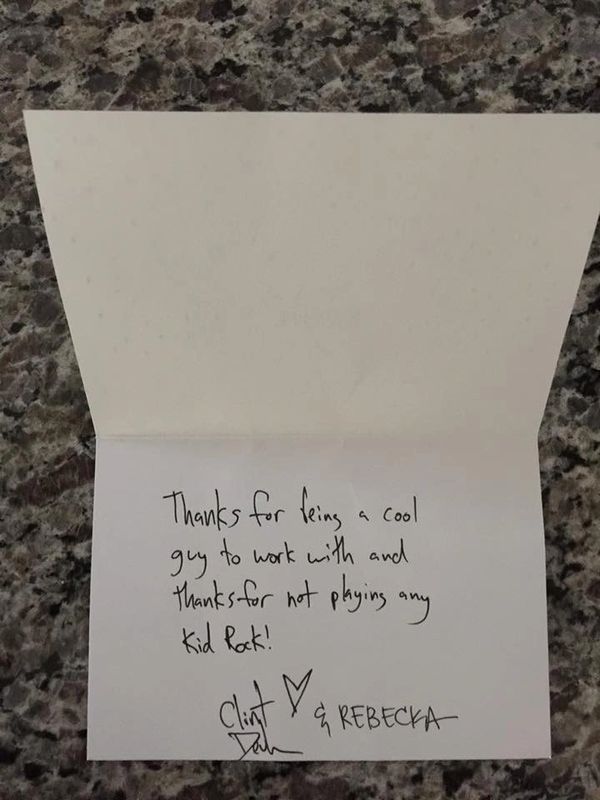 Thanks for being a cool
guy to work with and
thanks for not playing any
Kid Rock!
Clint & REBECKA